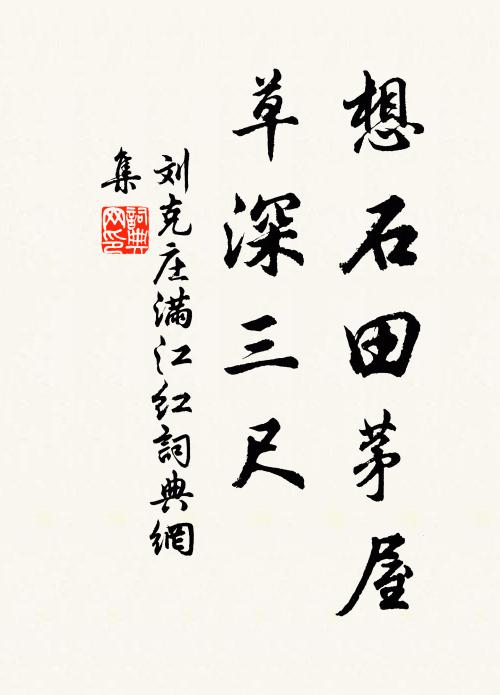 想石田茅屋
草深三尺
刘克庄满江红詞典網
集
詞典网印